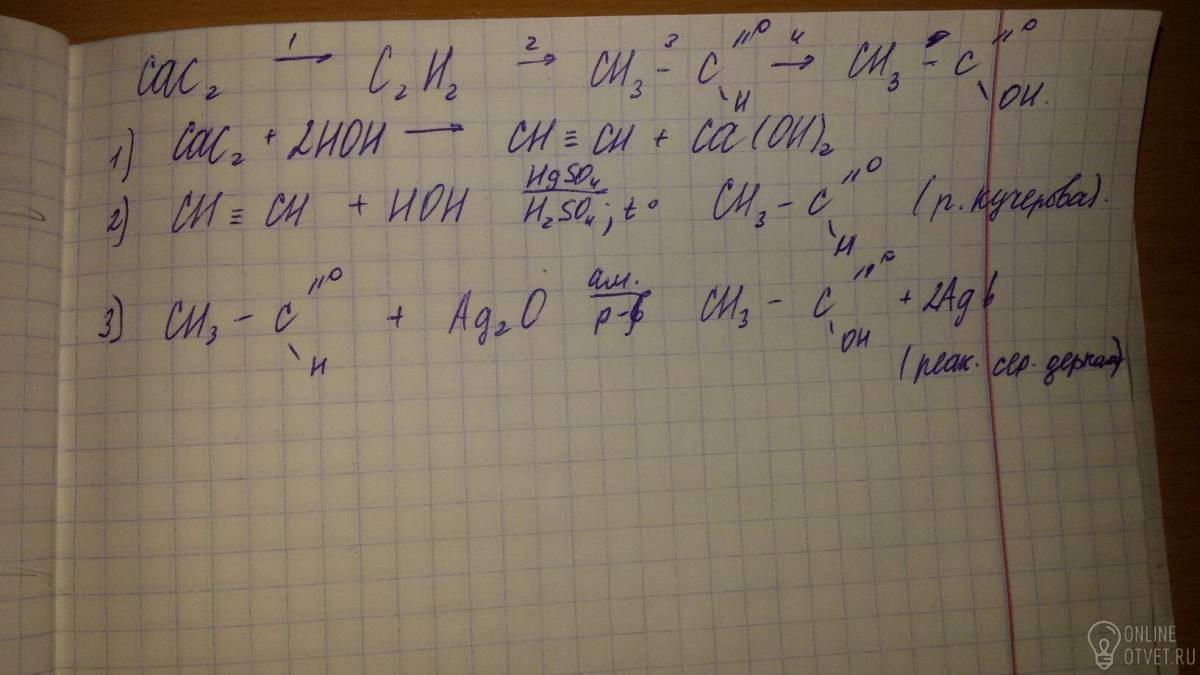 CaC₂ →¹ C₂H₂ →² CH₃ –³ C(=O)H →⁴ CH₃ – C(=O)OH.
1) CaC₂ + 2HOH → CH ≡ CH + Ca(OH)₂
2) CH ≡ CH + HOH HgSO₄ / H₂SO₄; t° CH₃ – C(=O)H (р. Кучерова).
3) CH₃ – C(=O)H + Ag₂O ам. / р-р CH₃ – C(=O)OH + 2Ag↓
(реак. сер. зеркала)
ONLINE
OTVET.RU